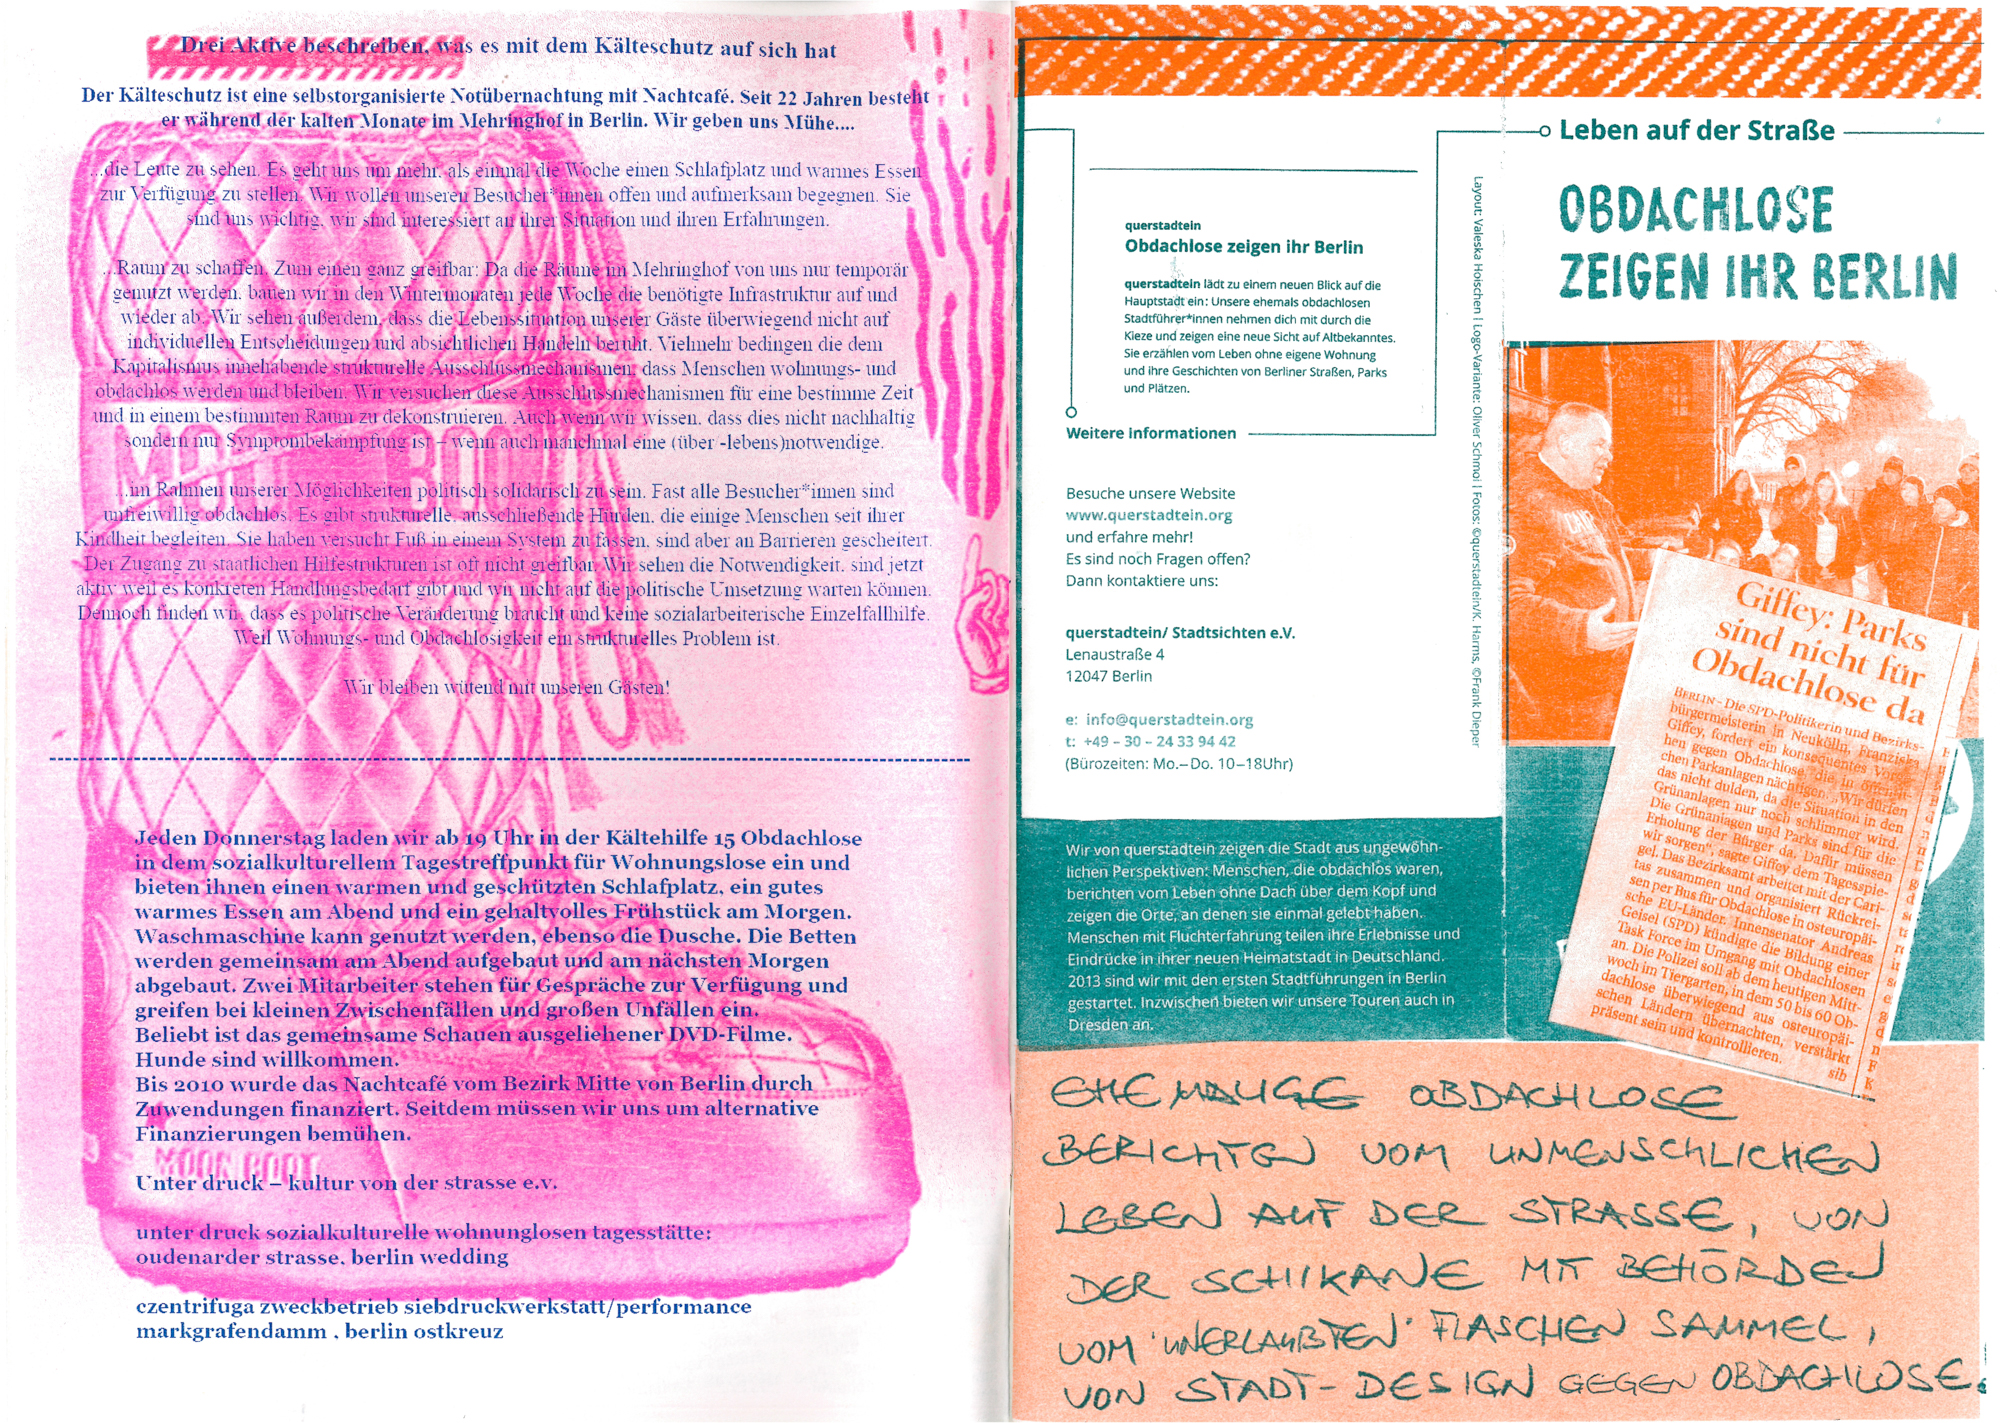 Drei Aktive beschreiben, was es mit dem Kälteschutz auf sich hat
Der Kälteschutz ist eine selbstorganisierte Notübernachtung mit Nachtcafé. Seit 22 Jahren besteht
er während der kalten Monate im Mehringhof in Berlin. Wir geben uns Mühe....
...die Leute zu sehen. Es geht uns um mehr, als einmal die Woche einen Schlafplatz und warmes Essen
zur Verfügung zu stellen. Wir wollen unseren Besucher*innen offen und aufmerksam begegnen. Sie
sind uns wichtig, wir sind interessiert an ihrer Situation und ihren Erfahrungen.
...Raum zu schaffen. Zum einen ganz greifbar: Da die Räume im Mehringhof von uns nur temporär
genutzt werden, bauen wir in den Wintermonaten jede Woche die benötigte Infrastruktur auf und
wieder ab. Wir sehen außerdem, dass die Lebenssituation unserer Gäste überwiegend nicht auf
individuellen Entscheidungen und absichtlichen Handeln beruht. Vielmehr bedingen die dem
Kapitalismus innehabende strukturelle Ausschlussmechanismen, dass Menschen wohnungs- und
obdachlos werden und bleiben. Wir versuchen diese Ausschlussmechanismen für eine bestimme Zeit
und in einem bestimmten Raum zu dekonstruieren. Auch wenn wir wissen, dass dies nicht nachhaltig
sondern nur Symptombekämpfung ist – wenn auch manchmal eine (über -lebens)notwendige.
...im Rahmen unserer Möglichkeiten politisch solidarisch zu sein. Fast alle Besucher*innen sind
unfreiwillig obdachlos. Es gibt strukturelle, ausschließende Hürden, die einige Menschen seit ihrer
Kindheit begleiten. Sie haben versucht Fuß in einem System zu fassen, sind aber an Barrieren gescheitert.
Der Zugang zu staatlichen Hilfestrukturen ist oft nicht greifbar. Wir sehen die Notwendigkeit, sind jetzt
aktiv weil es konkreten Handlungsbedarf gibt und wir nicht auf die politische Umsetzung warten können.
Dennoch finden wir, dass es politische Veränderung braucht und keine sozialarbeiterische Einzelfallhilfe.
Weil Wohnungs- und Obdachlosigkeit ein strukturelles Problem ist.
Wir bleiben wütend mit unseren Gästen!
Jeden Donnerstag laden wir ab 19 Uhr in der Kältehilfe 15 Obdachlose
in dem sozialkulturellem Tagestreffpunkt für Wohnungslose ein und
bieten ihnen einen warmen und geschützten Schlafplatz, ein gutes
warmes Essen am Abend und ein gehaltvolles Frühstück am Morgen.
Waschmaschine kann genutzt werden, ebenso die Dusche. Die Betten
werden gemeinsam am Abend aufgebaut und am nächsten Morgen
abgebaut. Zwei Mitarbeiter stehen für Gespräche zur Verfügung und
greifen bei kleinen Zwischenfällen und großen Unfällen ein.
Beliebt ist das gemeinsame Schauen ausgeliehener DVD-Filme.
Hunde sind willkommen.
Bis 2010 wurde das Nachtcafé vom Bezirk Mitte von Berlin durch
Zuwendungen finanziert. Seitdem müssen wir uns um alternative
Finanzierungen bemühen.
MOON BOOT
Unter druck – kultur von der strasse e.v.
unter druck sozialkulturelle wohnunglosen tagesstätte:
oudenarder strasse, berlin wedding
czentrifuga zweckbetrieb siebdruckwerkstatt/performance
markgrafendamm , berlin ostkreuz
Leben auf der Straße
OBDACHLOSE
ZEIGEN IHR BERLIN
querstadtein
Obdachlose zeigen ihr Berlin
querstadtein lädt zu einem neuen Blick auf die
Hauptstadt ein: Unsere ehemals obdachlosen
Stadtführer*innen nehmen dich mit durch die
Kieze und zeigen eine neue Sicht auf Altbekanntes.
Sie erzählen vom Leben ohne eigene Wohnung
und ihre Geschichten von Berliner Straßen, Parks
und Plätzen.
Weitere Informationen
Besuche unsere Website
www.querstadtein.org
und erfahre mehr!
Es sind noch Fragen offen?
Dann kontaktiere uns:
querstadtein/ Stadtsichten e.V.
Lenaustraße 4
12047 Berlin
e: info@querstadtein.org
t: +49 – 30 – 24 33 94 42
(Bürozeiten: Mo.–Do. 10–18Uhr)
Layout: Valeska Hoischen | Logo-Variante: Oliver Schmoi | Fotos: ©querstadtein/K. Harms, ©Frank Dieper
Wir von querstadtein zeigen die Stadt aus ungewöhn-
lichen Perspektiven: Menschen, die obdachlos waren,
berichten vom Leben ohne Dach über dem Kopf und
zeigen die Orte, an denen sie einmal gelebt haben.
Menschen mit Fluchterfahrung teilen ihre Erlebnisse und
Eindrücke in ihrer neuen Heimatstadt in Deutschland.
2013 sind wir mit den ersten Stadtführungen in Berlin
gestartet. Inzwischen bieten wir unsere Touren auch in
Dresden an.
Giffey: Parks
sind nicht für
Obdachlose da
BERLIN – Die SPD-Politikerin und Bezirks-
bürgermeisterin in Neukölln, Franziska
Giffey, fordert ein konsequentes Vorge-
hen gegen Obdachlose, die in öffentli-
chen Parkanlagen nächtigen. „Wir dürfen
das nicht dulden, da die Situation in den
Grünanlagen nur noch schlimmer wird.
Die Grünanlagen und Parks sind für die
Erholung der Bürger da. Dafür müssen
wir sorgen“, sagte Giffey dem Tagesspie-
gel. Das Bezirksamt arbeitet mit der Cari-
tas zusammen und organisiert Rückrei-
sen per Bus für Obdachlose in osteuropäi-
sche EU-Länder. Innensenator Andreas
Geisel (SPD) kündigte die Bildung einer
Task Force im Umgang mit Obdachlosen
an. Die Polizei soll ab dem heutigen Mitt-
woch im Tiergarten, in dem 50 bis 60 Ob-
dachlose überwiegend aus osteuropäi-
schen Ländern übernachten, verstärkt
präsent sein und kontrollieren.
sib
EHEMALIGE OBDACHLOSE
BERICHTEN VOM UNMENSCHLICHEN
LEBEN AUF DER STRASSE, VON
DER SCHIKANE MIT BEHÖRDEN
VOM 'UNERLAUBTEN' FLASCHEN SAMMEL,
VON STADT-DESIGN GEGEN OBDACHLOSE.